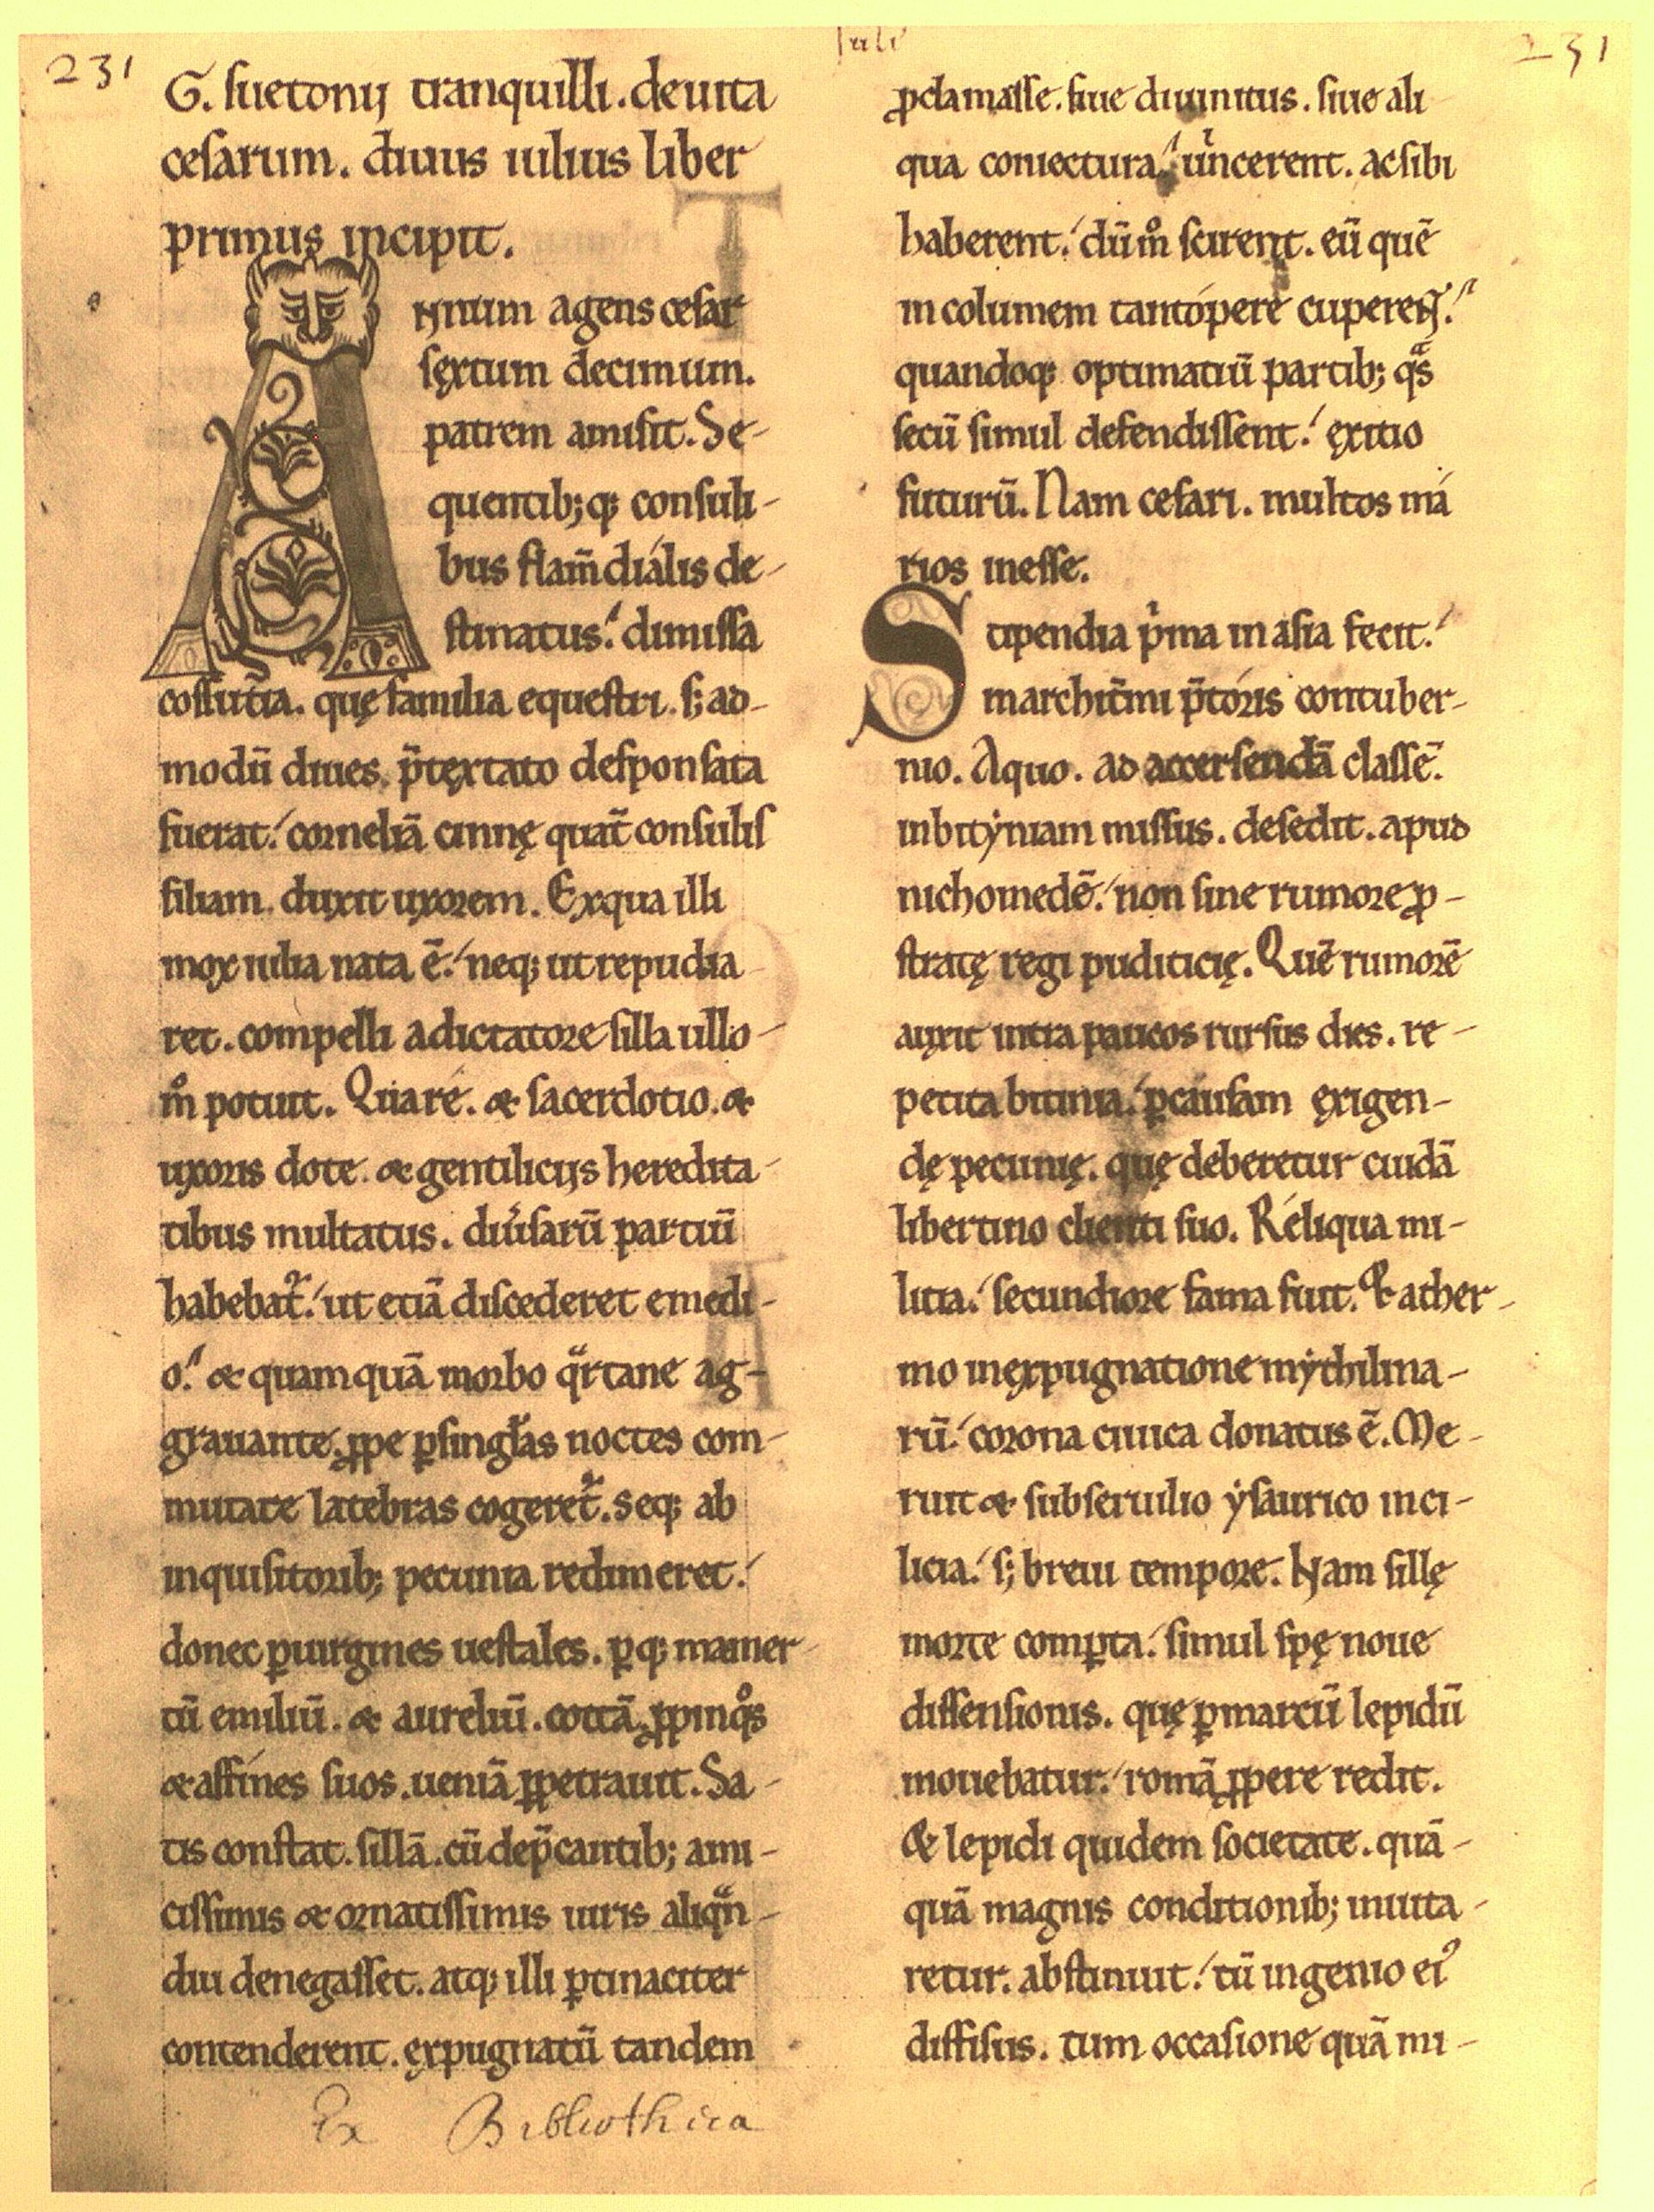 231
Iuli
231
G. suetonij tranquilli. de uita
cesarum. diuus iulius liber
primus incipit.
Annum agens cęsar
sęxtum decimum.
patrem amisit. Se-
quentib;q; consuli-
bus flam̄ diális de-
stinatus.' dimissa
cossutia. quę familia equestri. s; ad-
modū diues. p̄tęxtato desponsata
fuerat.' corneliā cinnę quat̄ consulis
filiam. duxit uxorem. Ex qua illi
mox iulia nata ē.' neq; ut repudia-
ret. compelli a dictatore silla ullo-
m̊ potuit. Quare. & sacerdotio. &
uxoris dote. & gentilicijs heredita-
tibus multatus. diuͥsarū partiū
habebat᷑.' ut etiā discederet e medi-
o.' & quamquā morbo qͣrtane ag-
grauante. ꝓpe ꝑ singl̓as noctes com-
mutare latebras coger&᷑. seq; ab
inquisitorib; pecunia redimeret.'
donec ꝑ uirgines uestales. ꝑq; mamer-
cū emiliū. & aureliū. cottā. ꝓpinqͦs
& affines suos. ueniā ꝓpetrauit. Sa-
tis constat. sillā. cū dep̄cantib; ami-
cissimis & ornatissimis uiris aliqͣn-
diu denegasset. atq; illi ꝑtinaciter
contenderent. expugnatū tandem
ꝓclamasse. siue diuinitus. siue ali-
qua coniectura.' uͥncerent. ac sibi
haberent.' dūm̊ scirent. eū quē
incolumem tantópere cuperent.'
quandoq; optimatiū partib; qͣs
secū simul defendissent.' ęxitio
futurū. Nam cesari. multos má
rios inesse.
Stipendia pͥma in asia fecit.'
marchi t̄mi p̄toris contuber-
nio. A quo. ad accersendā classē.
in bitẏniam missus. desedit. apud
nichomedē.' non sine rumore ꝓ-
stratę regi puditicię. Quē rumorē
auxit intra paucos rursus dies. re-
petita bitinia.' ꝑ causam ęxigen-
dę pecunię. quę deberetur cuidā
libertino clienti suo. Réliqua mi-
litia.' secundiore fama fuit. & a ther-
mo in ęxpugnatione mẏthilina-
rū.' corona ciuica donatus ē. Me-
ruit & sub seruilio ẏsaurico in ci-
licia.' s; breui tempore. Nam sillę
morte comꝑta.' simul spę noue
dissensionis. quę ꝑ marcū lepidū
mouebatur.' romā ꝓpere redit.
& lepidi quidem societate. quā-
quā magnis conditionib; inuita-
retur. abstinuit.' tū ingenio ei᷒
diffisus. tum occasione quā mi-
Ex Bibliothica